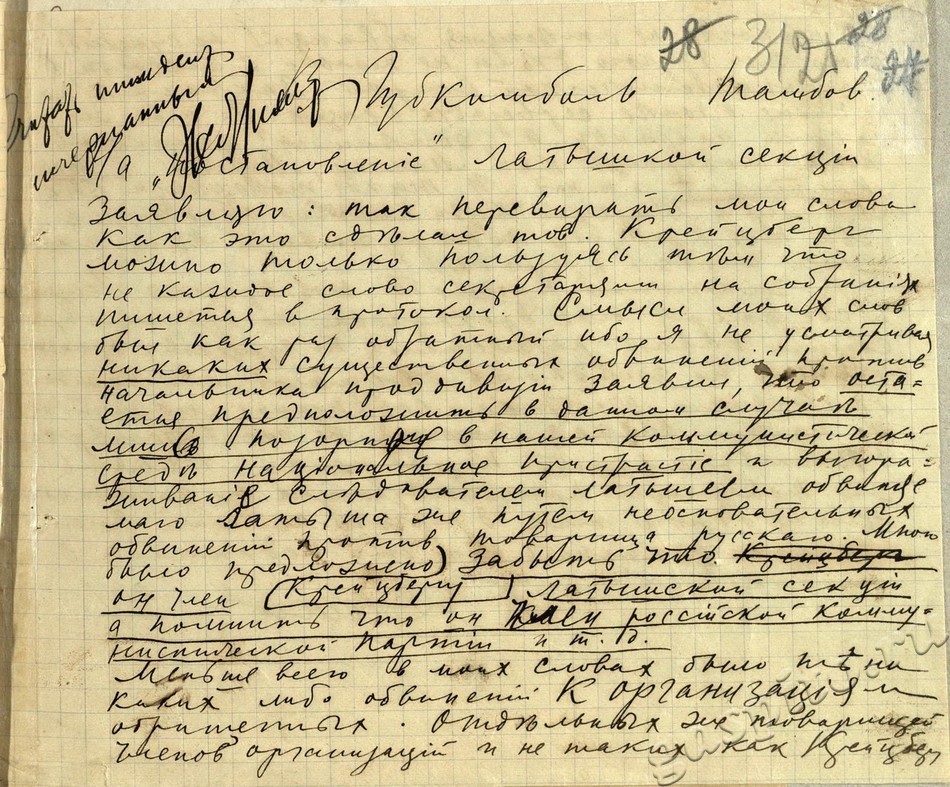 28 3/21 28
27
инцидент
исчерпанным
Губкомболь Тамбов.
На "Постановленіе" Латышской секціи
Заявляю: так перевирать мои слова
как это сделал тов. Крейцберг
можно только пользуясь тем что
не каждое слово секретарями на собраніях
пишется в протокол. Смысл моих слов
был как раз обратный ибо я не усматривая
никаких существенных обвиненій против
начальника продививзіи заявил, что оста=
ется предположить в данном случае
лишь позорное в нашей коммунистической
среде національное пристрастіе и выгора=
живаніе следователем латышем обвиняе
маго латыша же путем неосновательных
обвиненій против товарища русскаго. Мною
было предложено) Забыть что Крейцберг
он член (Крейцбергу) Латышской секціи
а помнить что он член россійской комму=
нистической партіи и т. д.
Меньше всего в моих словах было тѣни
каких либо обвиненій к организаціям
обращенных. Отдѣльных же товарищей
членов организацій и не таких как Крейцберг